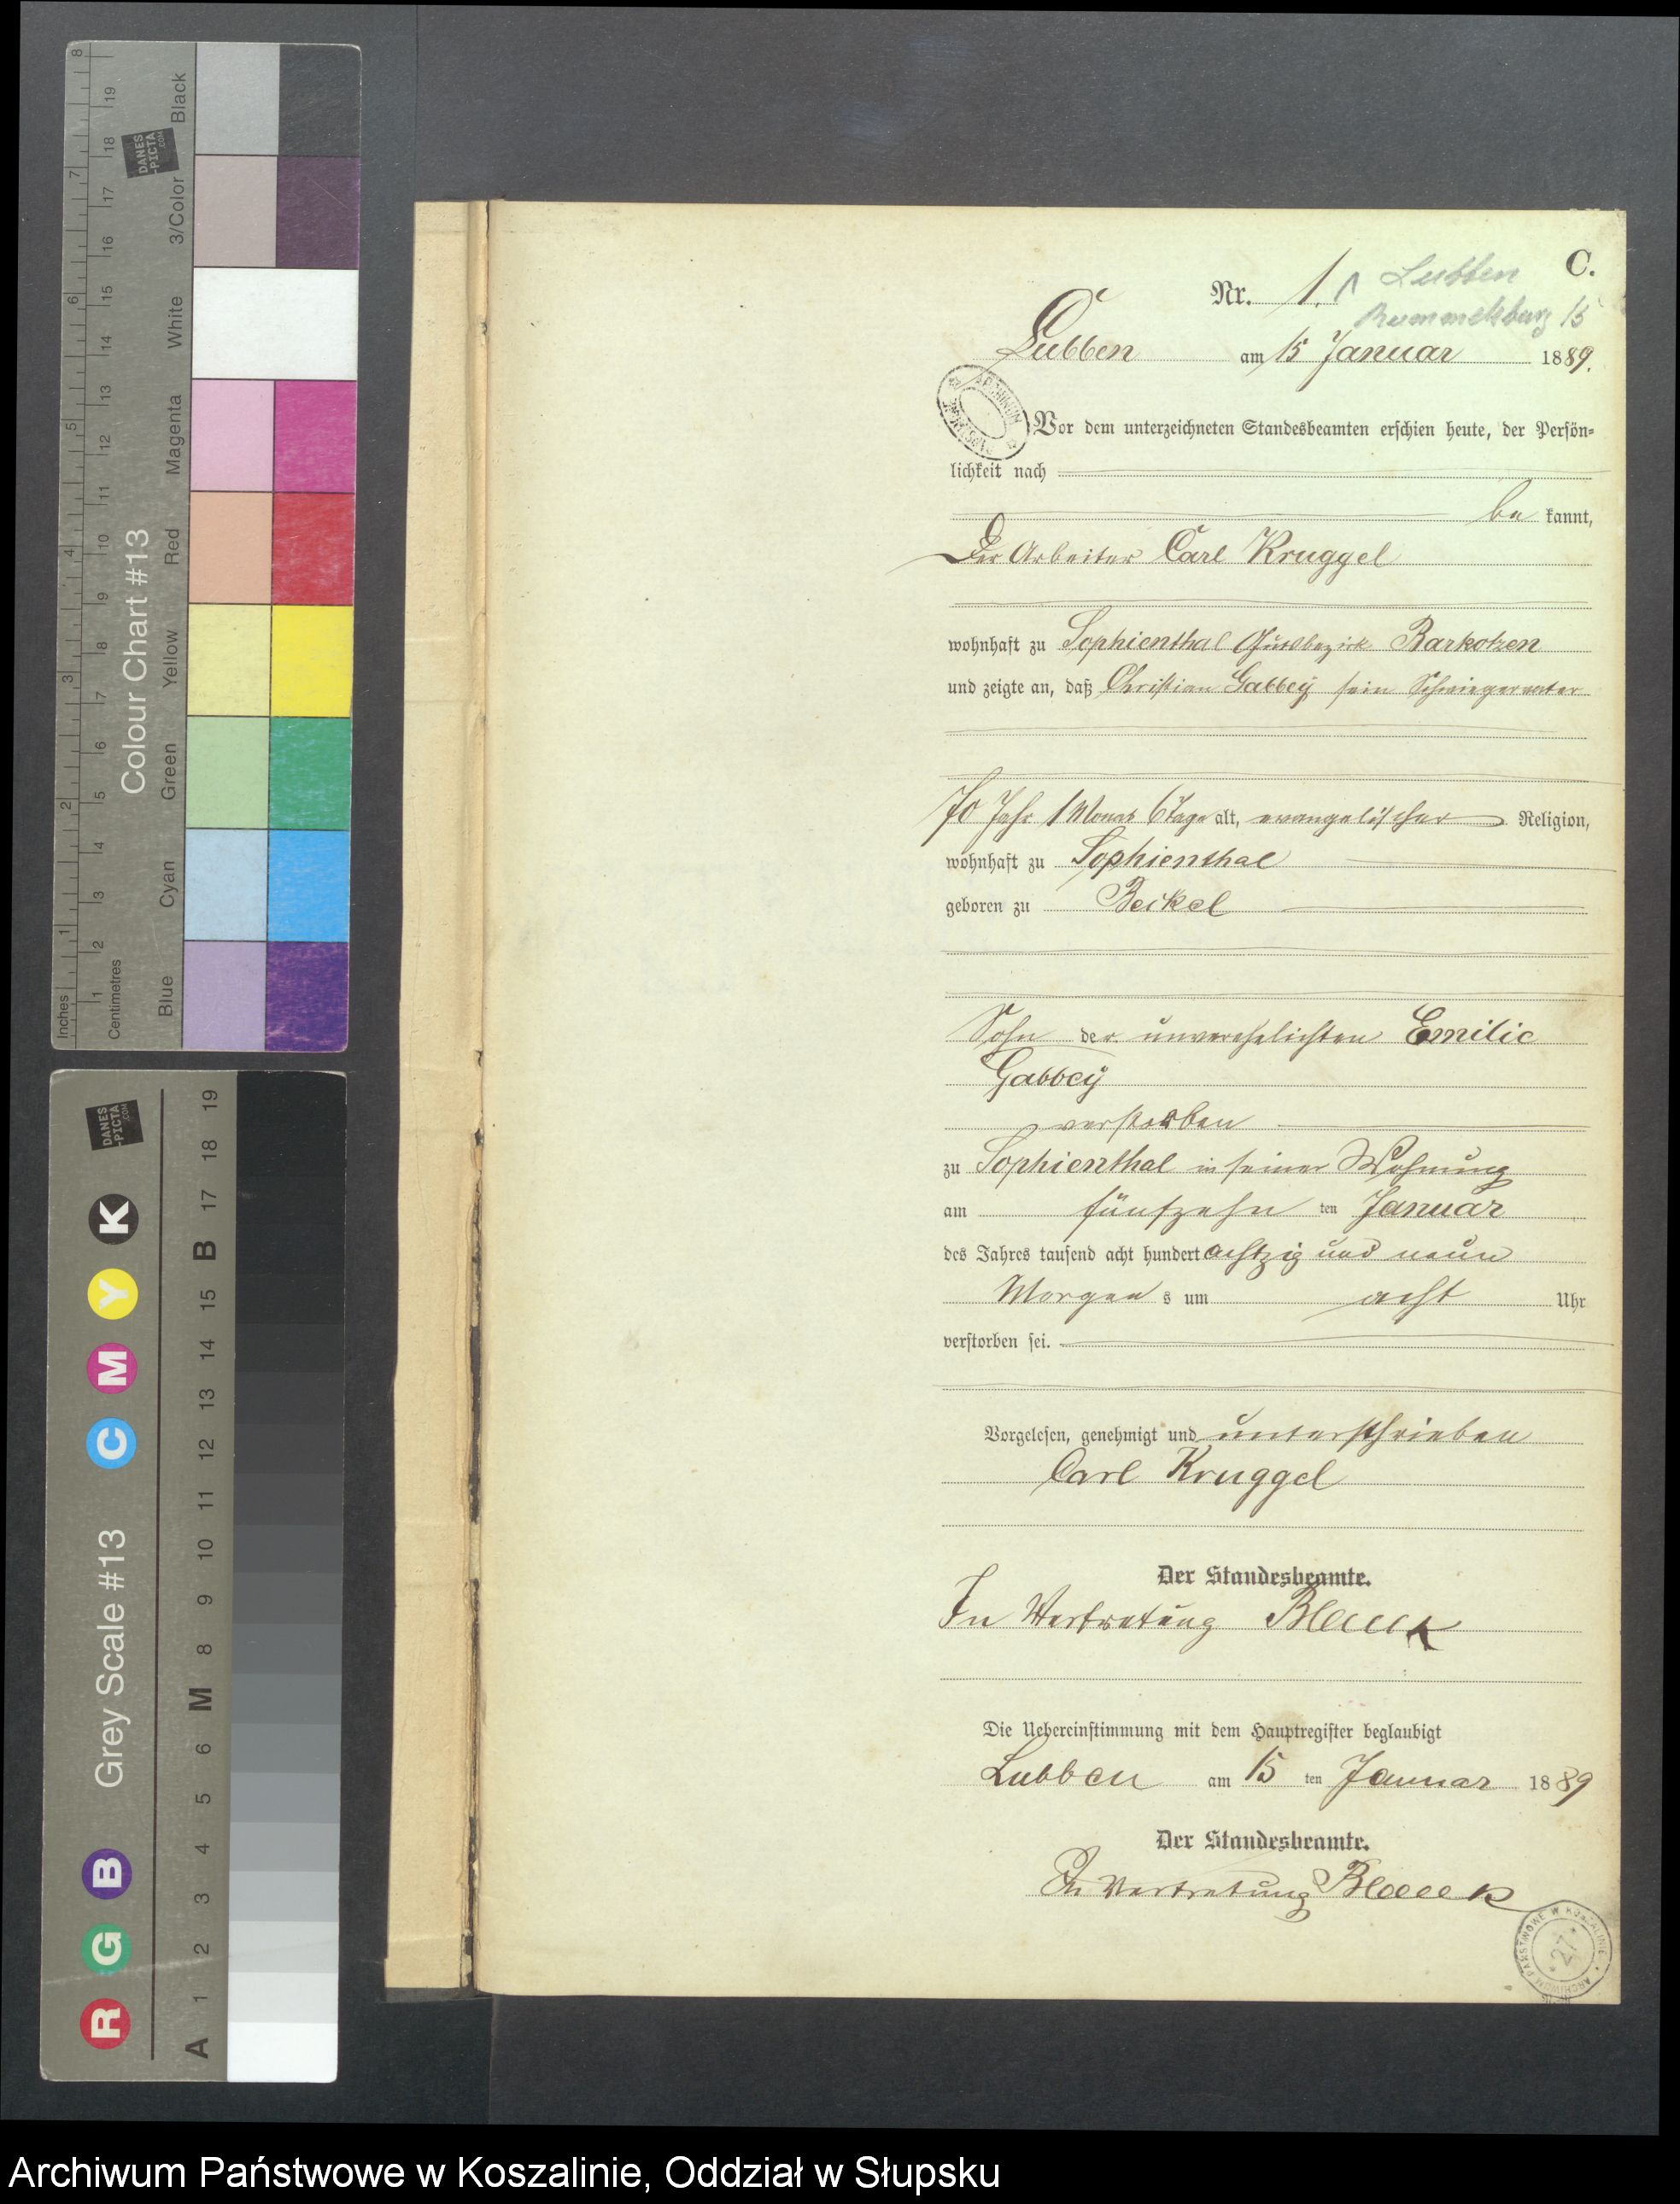 C.
Nr. 1.
Lubben
Rummelsburg 15
Lubben am 15 Januar 1889.
Vor dem unterzeichneten Standesbeamten erschien heute, der Persön-
lichkeit nach
be kannt,
Der Arbeiter Carl Kruggel
wohnhaft zu Sophienthal Gutsbezirk Barkotzen
und zeigte an, daß Christian Gabbey sein Schwiegervater
70 Jahr 1 Monat 6 Tage alt, evangelischer Religion,
wohnhaft zu Sophienthal
geboren zu Beikel
Sohn der unverehelichten Emilie
Gabbey
verstorben
zu Sophienthal in seiner Wohnung
am fünfzehn ten Januar
des Jahres tausend acht hundert achtzig und neun
Morgen s um acht Uhr
verstorben sei.
Vorgelesen, genehmigt und unterschrieben
Carl Kruggel
Der Standesbeamte.
In Vertretung Blauk
Die Uebereinstimmung mit dem Hauptregister beglaubigt
Lubben am 15 ten Januar 1889
Der Standesbeamte.
In Vertretung
ARCHIWUM PAŃSTWOWE W KOSZALINIE
27
Colour Chart #13
Blue Cyan Green Yellow Red Magenta White 3/Color Black
Inches 1 2 3 4 5 6 7 8
Centimetres 1 2 3 4 5 6 7 8 9 10 11 12 13 14 15 16 17 18 19
DANES
-PICTA
.COM
Grey Scale #13
R G B C M Y K
A 1 2 3 4 5 6 M 8 9 10 11 12 13 14 15 B 17 18 19
DANES
-PICTA
.COM
Archiwum Państwowe w Koszalinie, Oddział w Słupsku